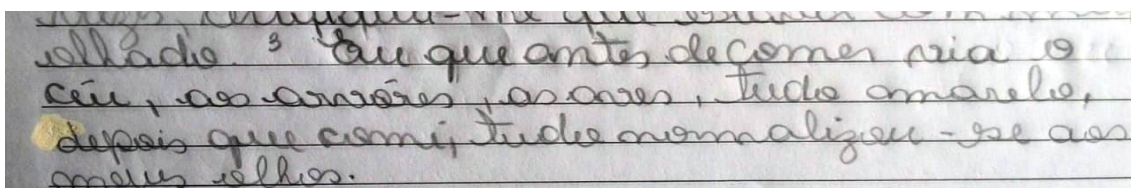 olhado. ³ Eu que antes de comer via o
céu, as arvóres, as aves, tudo amarelo,
depois que comi, tudo normalizou-se aos
meus olhos.